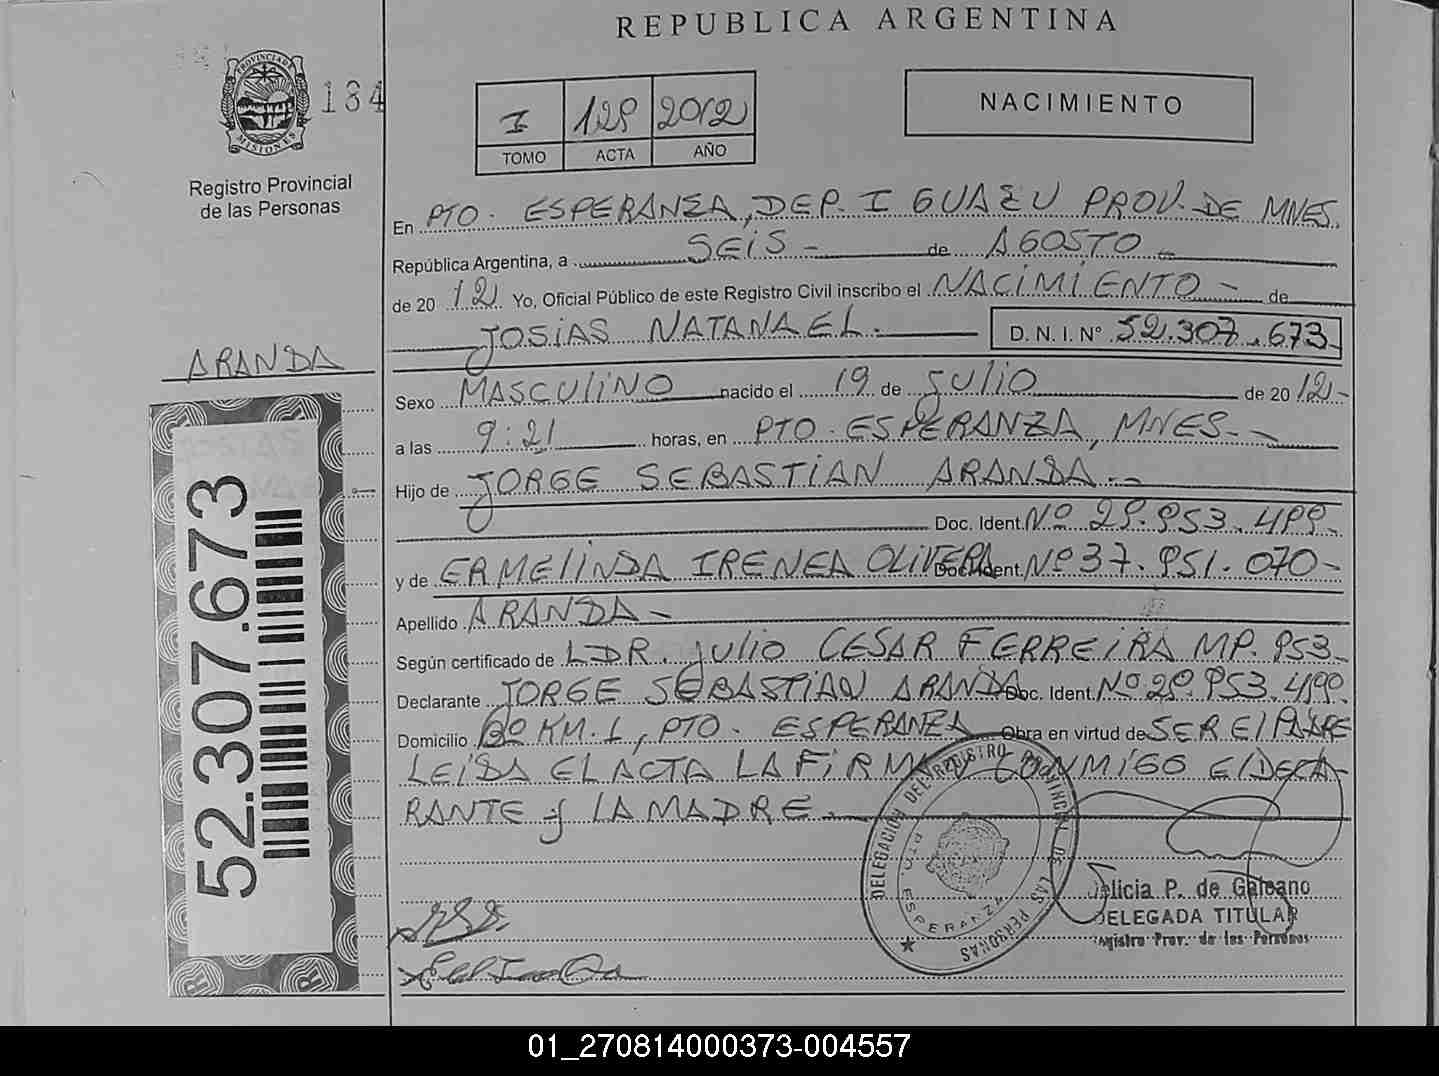 REPUBLICA ARGENTINA
PROVINCIA DE
MISIONES
184
Registro Provincial
de las Personas
I 129 2012
TOMO ACTA AÑO
NACIMIENTO
En PTO. ESPERANZA, DEP. IGUAZU PROV. DE MNES.
República Argentina, a SEIS - de AGOSTO -
de 20 12 Yo, Oficial Público de este Registro Civil inscribo el NACIMIENTO - de
JOSIAS NATANAEL. D. N. I. Nº 52.307.673-
ARANDA
Sexo MASCULINO nacido el 19 de JULIO de 20 12-
a las 9:21 horas, en PTO. ESPERANZA, MNES.-
Hijo de JORGE SEBASTIAN ARANDA.-
Doc. Ident. Nº 29.953.499.
y de ERMELINDA IRENEA OLIVERA Doc. Ident. Nº 37.951.070-
Apellido ARANDA-
Según certificado de LDR. Julio CESAR FERREIRA MP. 953-
Declarante JORGE SEBASTIAN ARANDA Doc. Ident. Nº 29.953.499.
Domicilio Bº KM.1, PTO. ESPERANZA Obra en virtud de SER El PADRE
LEIDA EL ACTA LA FIRMA CONMIGO El DECLA-
RANTE y LA MADRE.-
52.307.673
DELEGACION DEL REGISTRO PROVINCIAL DE LAS PERSONAS
PTO. ESPERANZA
licia P. de Galeano
DELEGADA TITULAR
Registro Prov. de las Personas
01_270814000373-004557